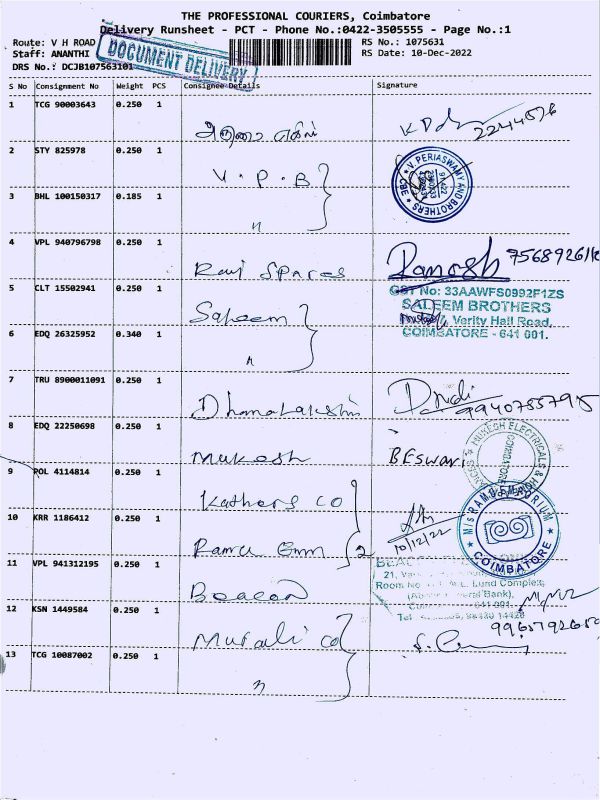 THE PROFESSIONAL COURIERS, Coimbatore
Delivery Runsheet - PCT - Phone No.:0422-3505555 - Page No.:1
Route: V H ROAD
RS No.: 1075631
Staff: ANANTHI
RS Date: 10-Dec-2022
DRS No.: DCJB107563101
DOCUMENT DELIVERY
S No Consignment No Weight PCS Consignee Details Signature
1 TCG 90003643 0.250 1
2244576
2 STY 825978 0.250 1
V.P.B
V. PERIASWAMY AND BROTHERS
CBE
3 BHL 100150317 0.185 1
"
4 VPL 940796798 0.250 1
Ravi Spares
Ramesh
5 CLT 15502941 0.250 1
Saleem
GST No: 33AAWFS0992F1ZS
SALEEM BROTHERS
Verity Hall Road,
COIMBATORE - 641 001.
6 EDQ 26325952 0.340 1
"
7 TRU 8900011091 0.250 1
Dhanalakshmi
9940755795
8 EDQ 22250698 0.250 1
Mukesh
BEswari
MUKESH ELECTRICALS &
COIMBATORE
9 POL 4114814 0.250 1
Kathers Co
10 KRR 1186412 0.250 1
Ramu Emm
2
10/12/22
MISRAMU EMPORIUM
COIMBATORE
11 VPL 941312195 0.250 1
Beacon
21,
Room No
Lund Complex,
Bank),
641 001.
Tel
98430 14420
12 KSN 1449584 0.250 1
Murali Co
13 TCG 10087002 0.250 1
"